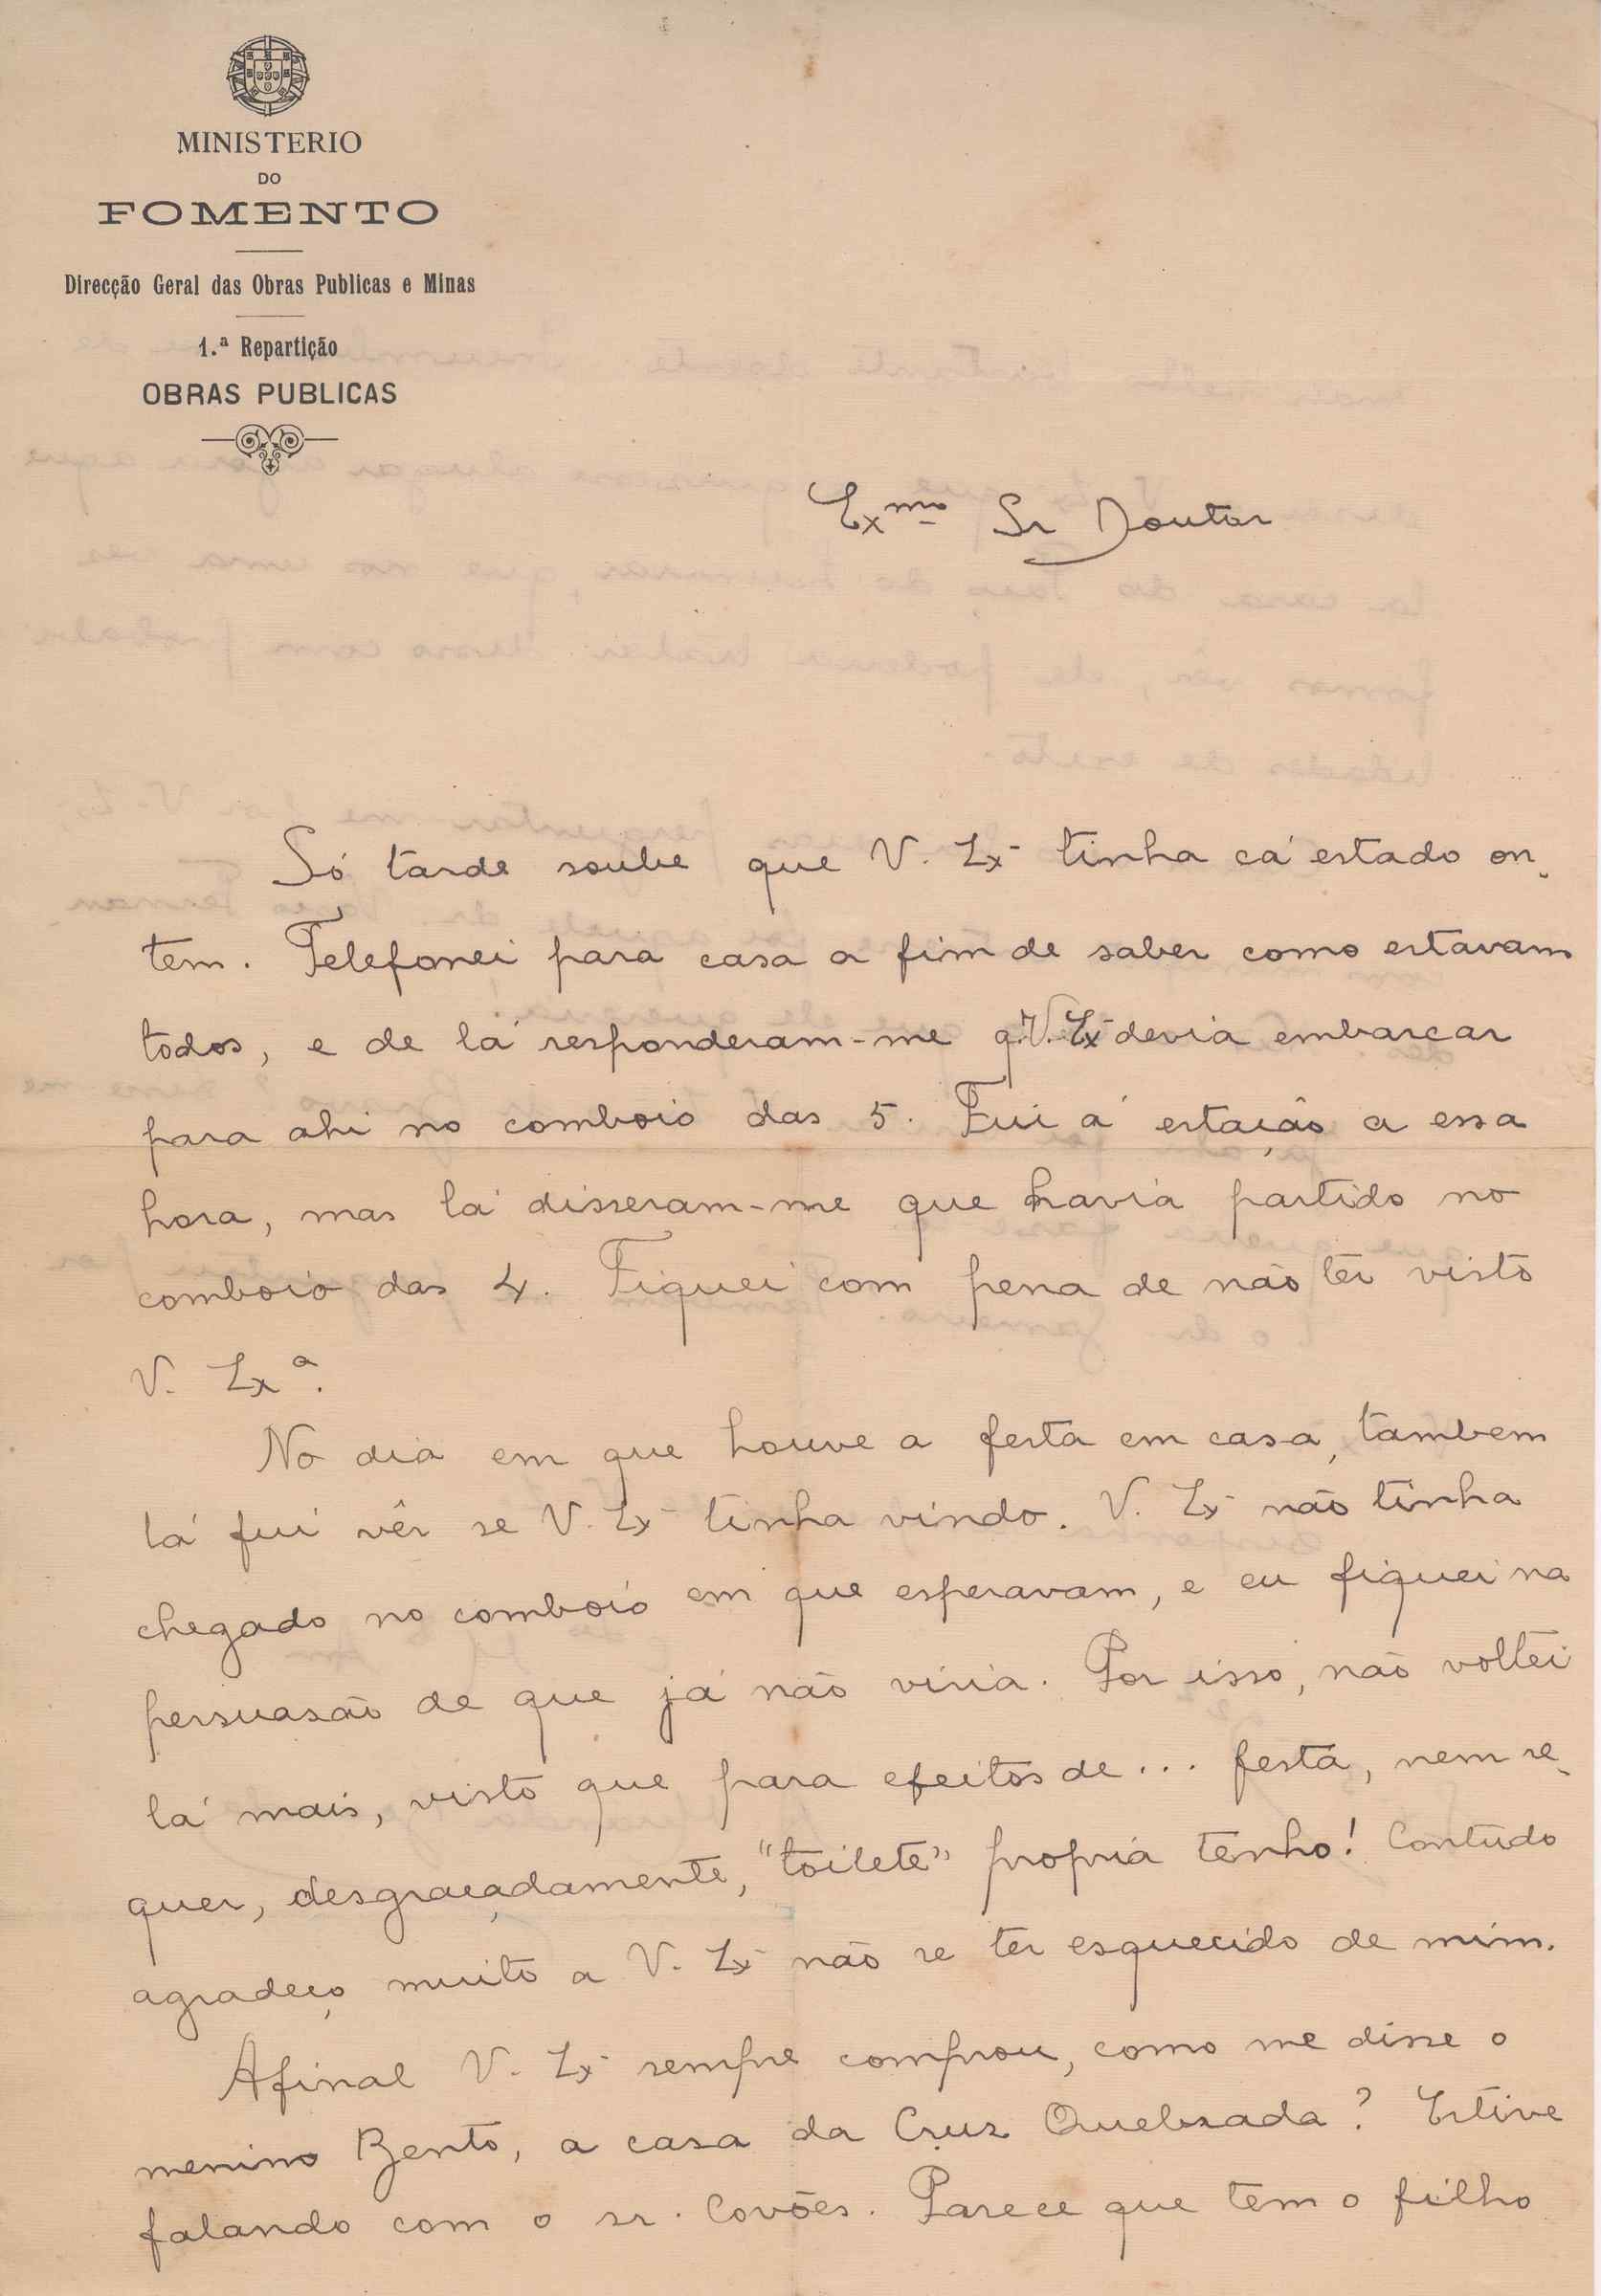 MINISTERIO
DO
FOMENTO
Direcção Geral das Obras Publicas e Minas
1.ª Repartição
OBRAS PUBLICAS
Exmo Sr Doutor
Só tarde soube que V. Ex- tinha cá estado on-
tem. Telefonei para casa a fim de saber como estavam
todos, e de lá responderam-me q. V. Ex- devia embarcar
para ahi no comboio das 5. Fui á estação a essa
hora, mas lá disseram-me que havia partido no
comboio das 4. Fiquei com pena de não ter visto
V. Exª.
No dia em que houve a festa em casa, tambem
lá fui vêr se V. Ex- tinha vindo. V. Ex- não tinha
chegado no comboio em que esperavam, e eu fiquei na
persuasão de que já não viria. Por isso, não voltei
lá mais, visto que para efeitos de... festa, nem se-
quer, desgraçadamente, "toilete" propria tenho! Contudo
agradeço muito a V. Ex- não se ter esquecido de mim.
Afinal V. Ex- sempre comprou, como me disse o
menino Bento, a casa da Cruz Quebrada? Estive
falando com o sr. Covões. Parece que tem o filho